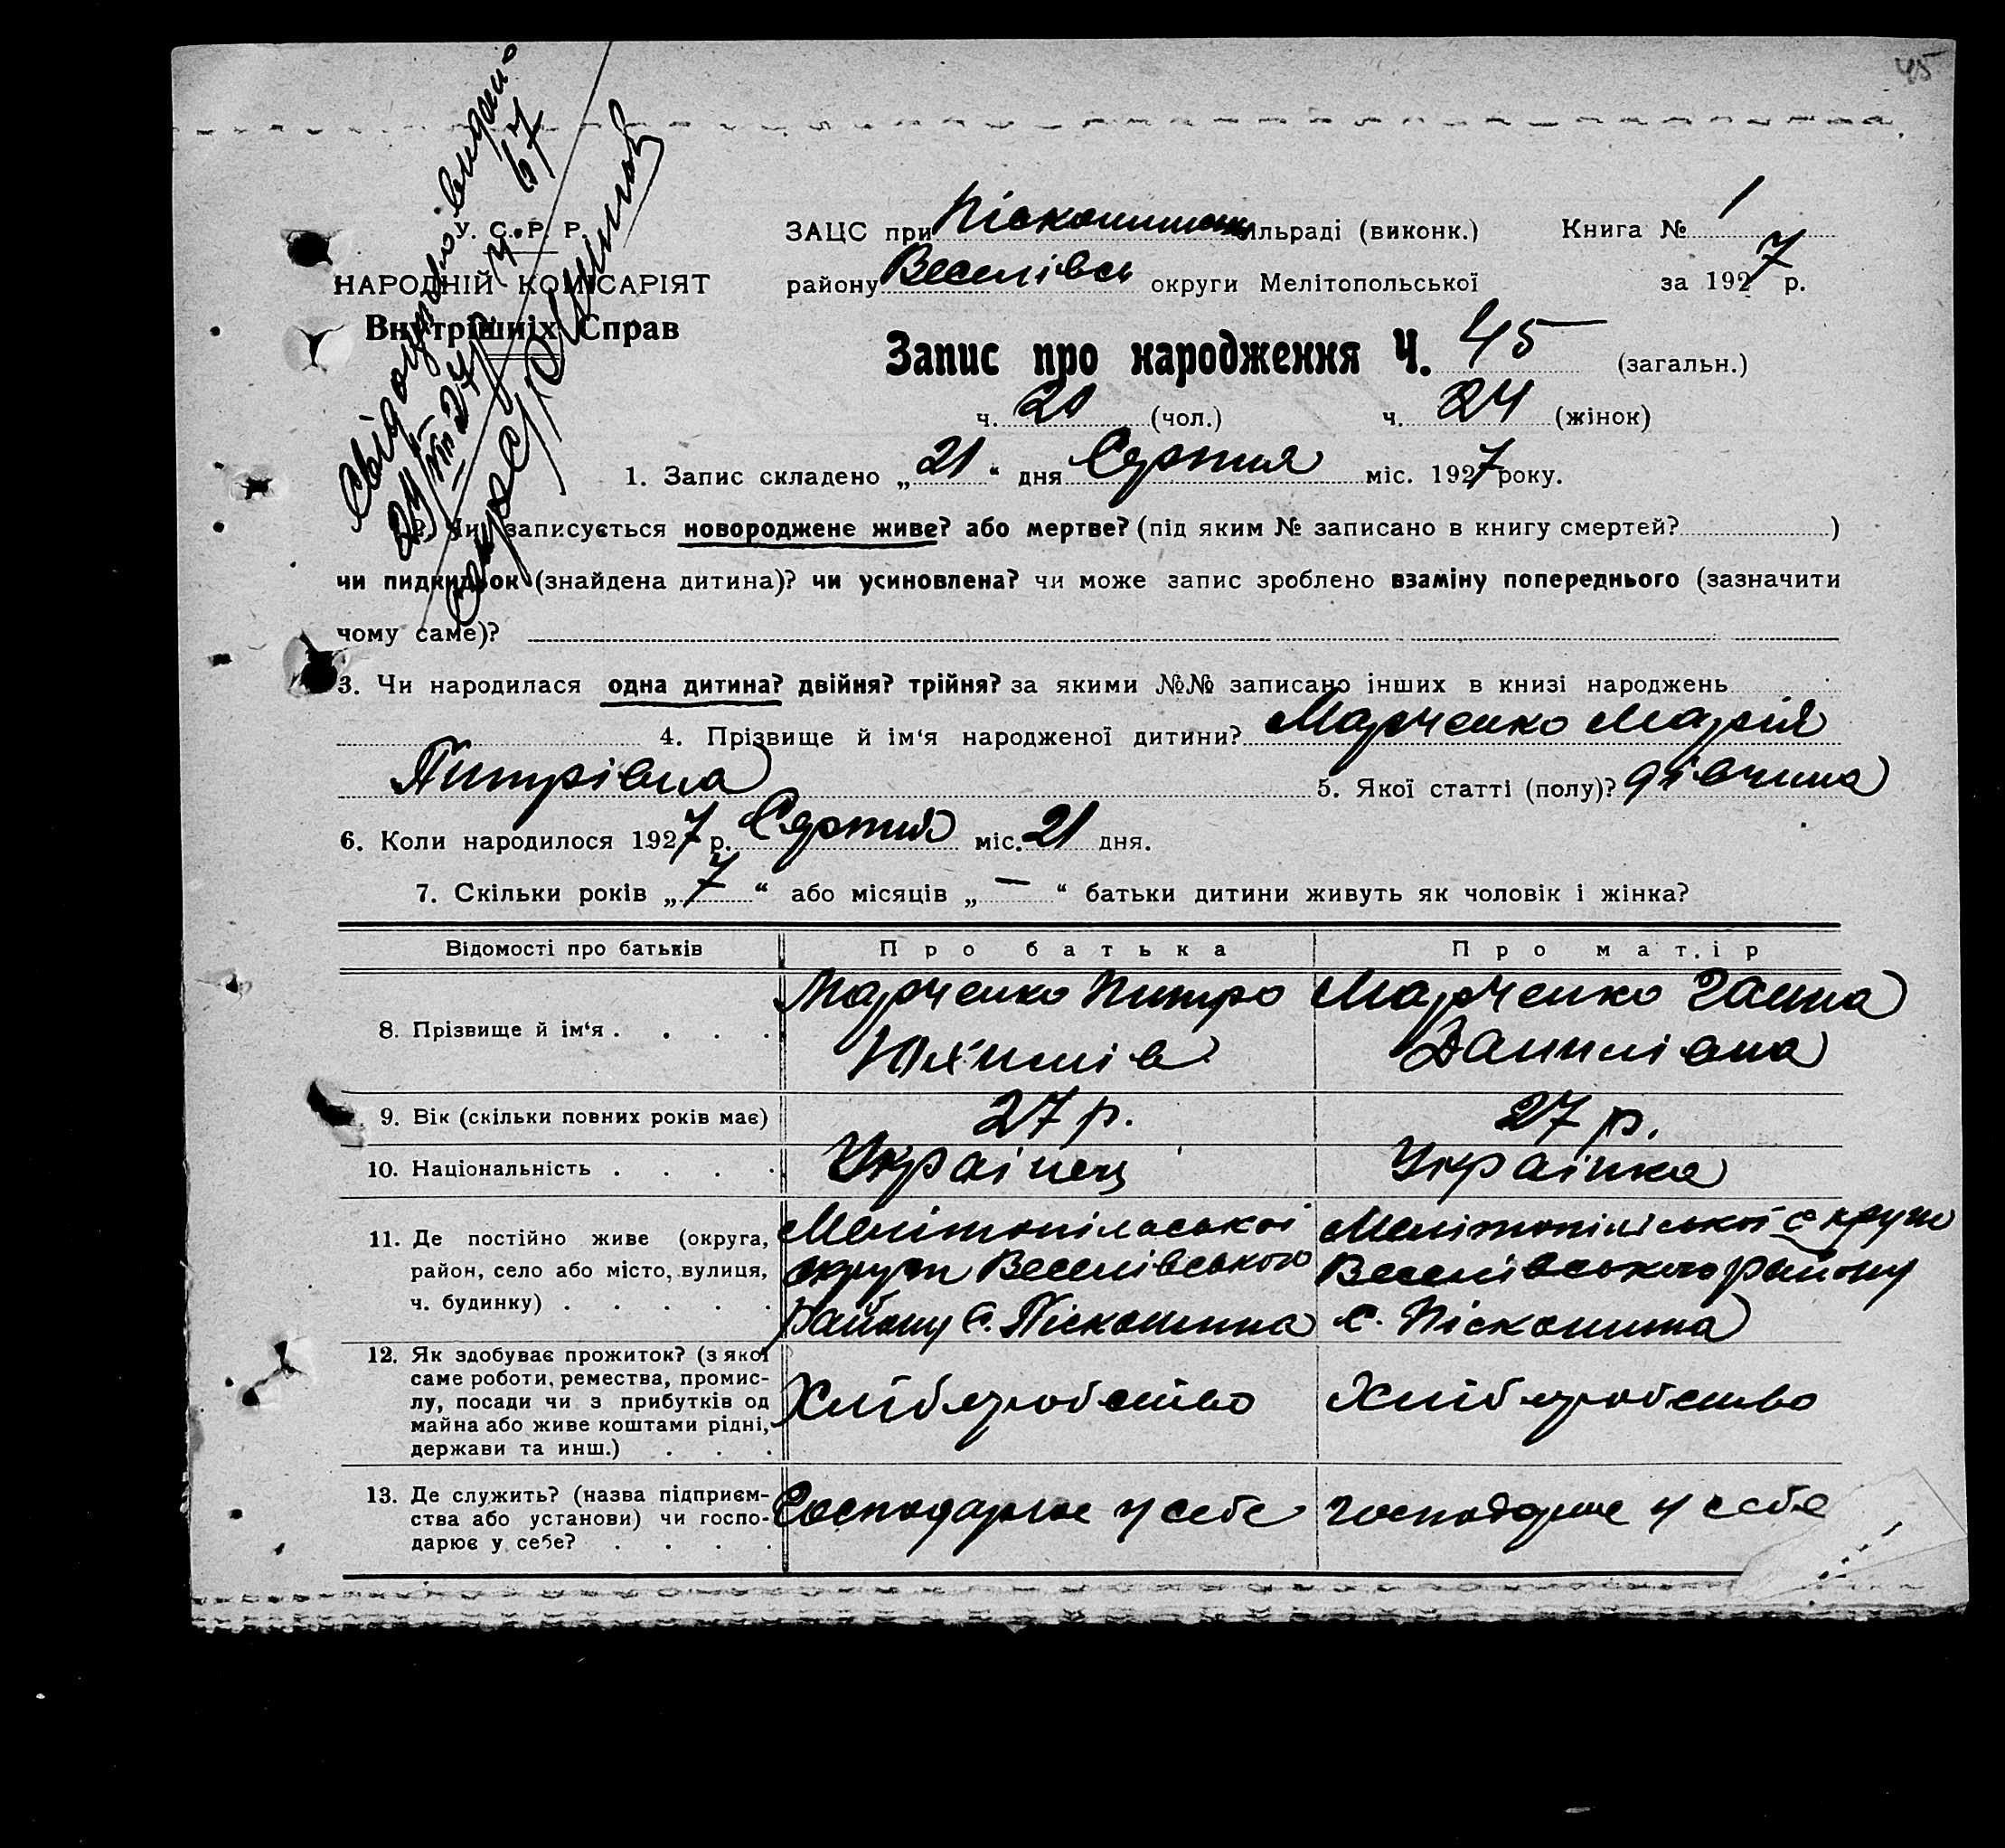 45
Свідоцтво видано
У. С. Р. Р.
НАРОДНІЙ КОМІСАРІЯТ
Внутрішніх Справ
ЗАЦС при Піскошинськ ільраді (виконк.) Книга № 1
району Веселівськ округи Мелітопольської за 1927 р.
Запис про народження Ч. 45 (загальн.)
ч. 21 (чол.) ч. 24 (жінок)
1. Запис складено „21“ дня Серпня міс. 1927 року.
2. Чи записується новороджене живе? або мертве? (під яким № записано в книгу смертей? )
чи пидкидьок (знайдена дитина)? чи усиновлена? чи може запис зроблено взаміну попереднього (зазначити
чому саме)?
3. Чи народилася одна дитина? двійня? трійня? за якими №№ записано інших в книзі народжень
4. Прізвище й ім‘я народженої дитини? Марченко Марія
Питрівна 5. Якої статті (полу)? дівчина
6. Коли народилося 1927 р. Серпня міс. 21 дня.
7. Скільки років „7“ або місяців „—“ батьки дитини живуть як чоловік і жінка?
Відомості про батьків Про батька Про матір
8. Прізвище й ім‘я . . . . Марченко Питро Марченко Ганна
Юхимів Данилівна
9. Вік (скільки повних років має) 27 р. 27 р.
10. Національність . . . . Українец Українка
11. Де постійно живе (округа, Мелітопільської Мелітопільської округи
район, село або місто, вулиця, округи Веселівського Веселівського району
ч. будинку) . . . . . району с. Піскошина с. Піскошина
12. Як здобуває прожиток? (з якої
саме роботи, ремества, промис-
лу, посади чи з прибутків од Хліборобство Хліборобство
майна або живе коштами рідні,
держави та инш.) . . .
13. Де служить? (назва підприєм- Господарює у себе господарює у себе
ства або установи) чи госпо-
дарює у себе? . . . .